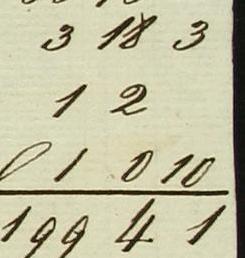 3 18 3
1 2
1 0 10
199 4 1